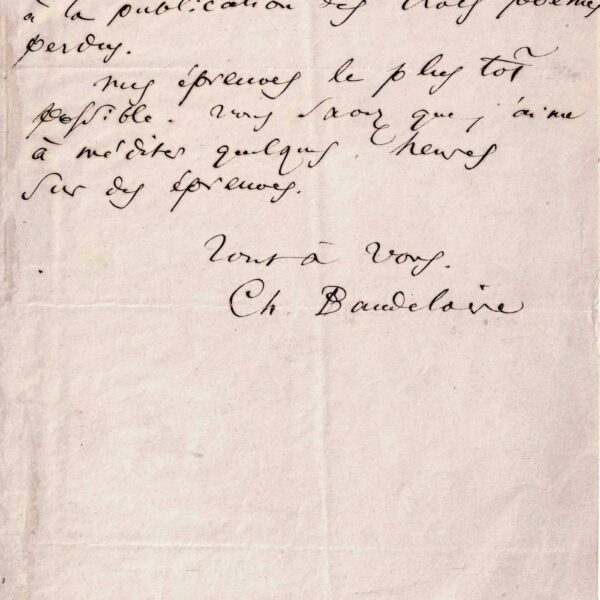 à la publication des trois poèmes
perdus.
mes épreuves le plus tôt
possible. Vous savez que j'aime
à méditer quelques heures
sur des épreuves.
Tout à vous.
Ch. Baudelaire